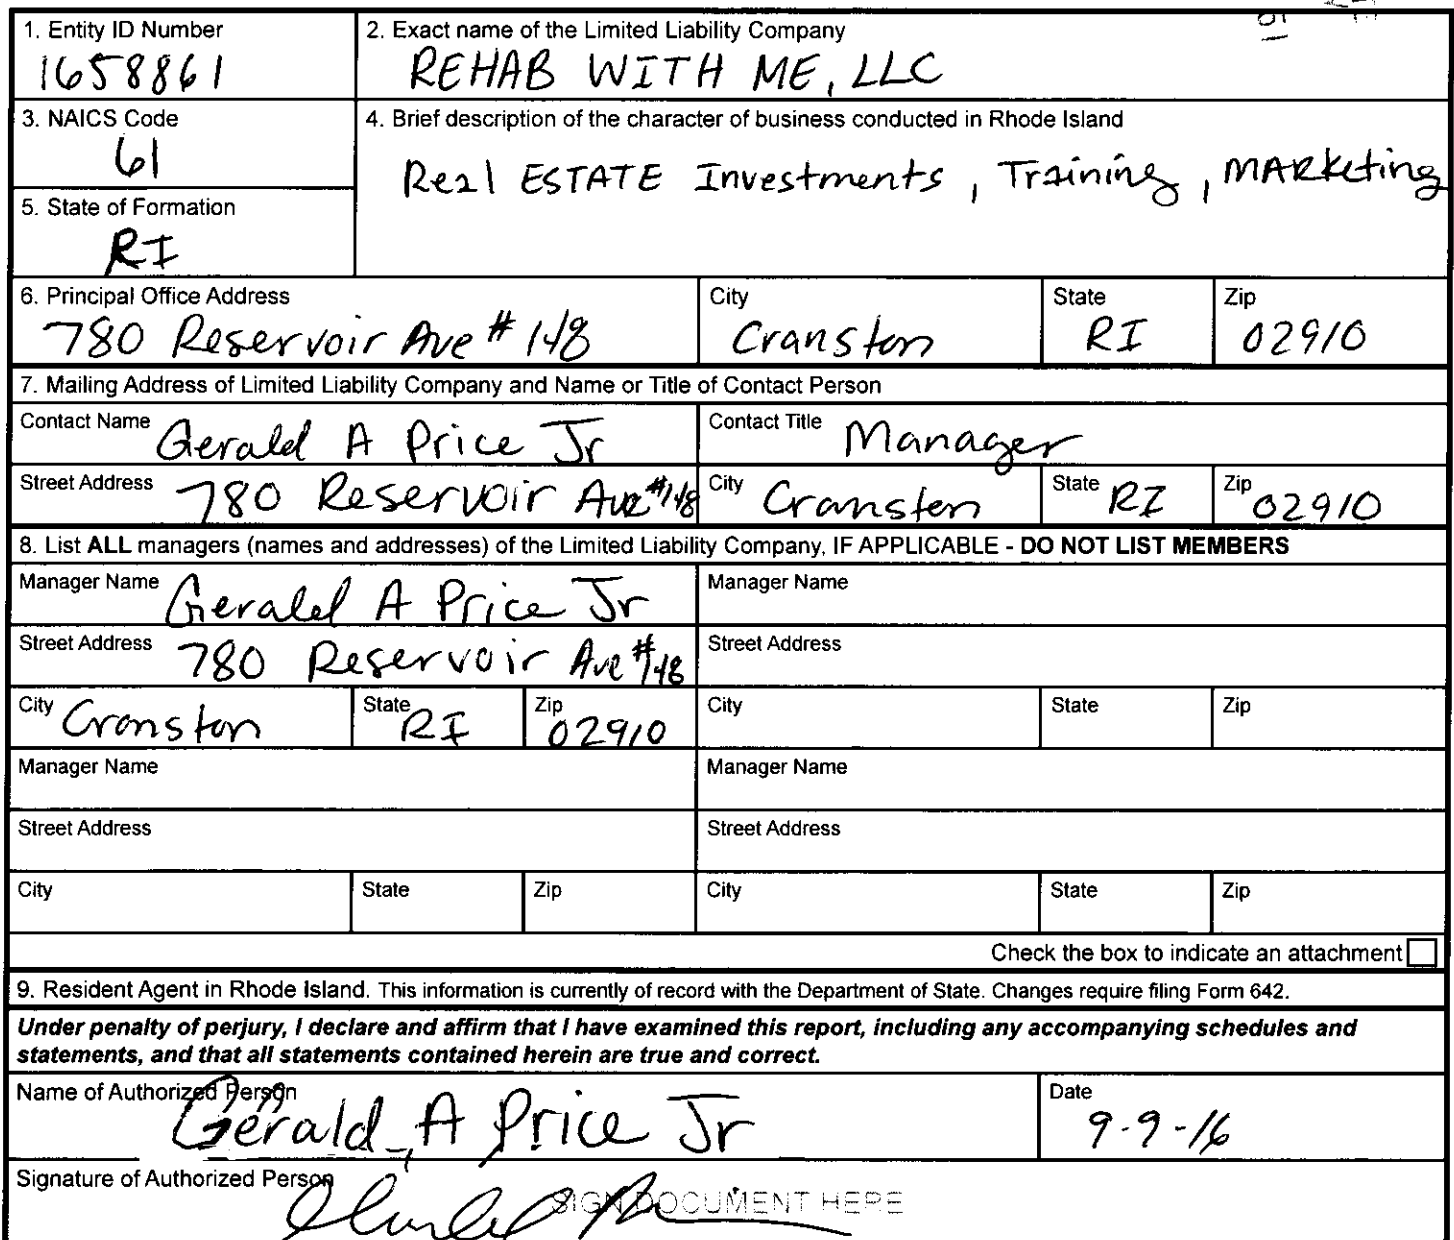 1. Entity ID Number
1658861
2. Exact name of the Limited Liability Company
REHAB WITH ME, LLC
3. NAICS Code
61
4. Brief description of the character of business conducted in Rhode Island
Real ESTATE Investments, Training, MARketing
5. State of Formation
RI
6. Principal Office Address
780 Reservoir Ave # 148
City
Cranston
State
RI
Zip
02910
7. Mailing Address of Limited Liability Company and Name or Title of Contact Person
Contact Name Gerald A Price Jr
Contact Title Manager
Street Address 780 Reservoir Ave #148
City Cranston
State RI
Zip 02910
8. List ALL managers (names and addresses) of the Limited Liability Company, IF APPLICABLE - DO NOT LIST MEMBERS
Manager Name Gerald A Price Jr
Manager Name
Street Address 780 Reservoir Ave #148
Street Address
City Cranston
State RI
Zip 02910
City
State
Zip
Manager Name
Manager Name
Street Address
Street Address
City
State
Zip
City
State
Zip
Check the box to indicate an attachment
9. Resident Agent in Rhode Island. This information is currently of record with the Department of State. Changes require filing Form 642.
Under penalty of perjury, I declare and affirm that I have examined this report, including any accompanying schedules and
statements, and that all statements contained herein are true and correct.
Name of Authorized Person
Gerald A Price Jr
Date
9-9-16
Signature of Authorized Person
SIGN DOCUMENT HERE